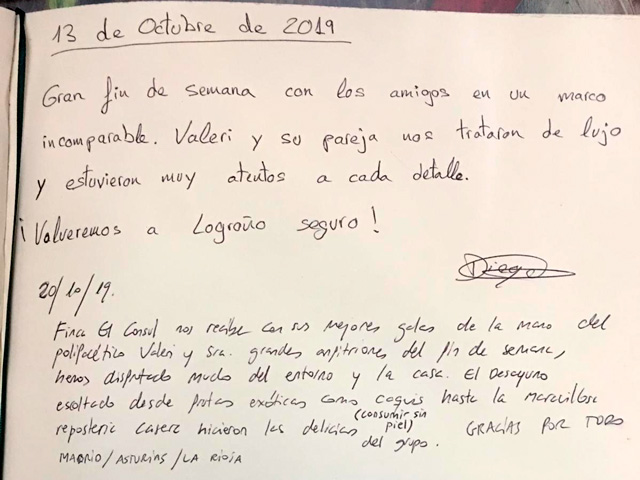 13 de Octubre de 2019
Gran fin de semana con los amigos en un marco
incomparable. Valeri y su pareja nos trataron de lujo
y estuvieron muy atentos a cada detalle.
¡Volveremos a Logroño seguro!
Diego
20/10/19.
Finca El Consul nos recibe con sus mejores galas de la mano del
polifacético Valeri y Sra. grandes anfitriones del fin de semana,
hemos disfrutado mucho del entorno y la casa. El Desayuno
exaltado desde frutas exóticas como caquis hasta la maravillosa
(consumir sin
repostería casera hicieron las delicias piel)
del grupo. GRACIAS POR TODO
MADRID/ASTURIAS/LA RIOJA